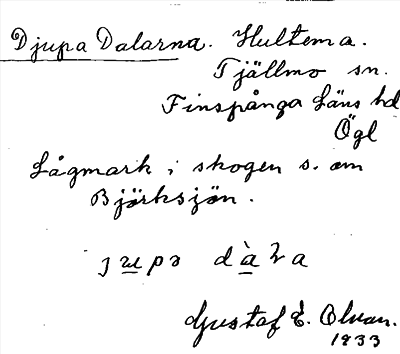 Djupa Dalarna. Hultema.
Tjällmo sn.
Finspånga Läns hd
Ögl
Lågmark i skogen s. om
Björksjön.
jupə dàɽa
Gustaf E. Olsson.
1933